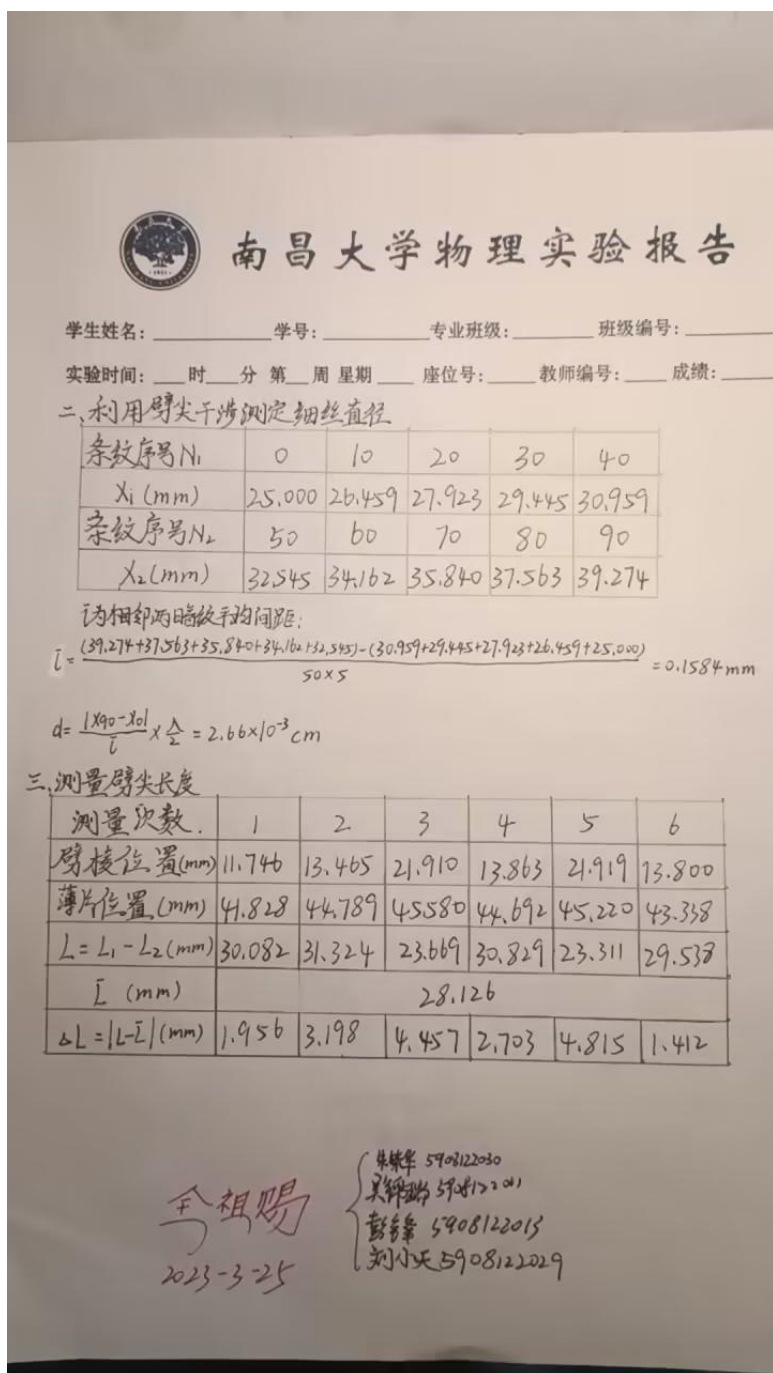 南昌大学物理实验报告
学生姓名：__________ 学号：__________ 专业班级：________ 班级编号：________
实验时间：___时___分 第__周 星期___ 座位号：____ 教师编号：____ 成绩：____
二、利用劈尖干涉测定细丝直径
条纹序号N₁ 0 10 20 30 40
X₁(mm) 25.000 26.459 27.923 29.445 30.959
条纹序号N₂ 50 60 70 80 90
X₂(mm) 32.545 34.162 35.840 37.563 39.274
l̄为相邻两暗纹平均间距:
l̄ = ((39.274+37.563+35.840+34.162+32.545)-(30.959+29.445+27.923+26.459+25.000))/(50×5) = 0.1584mm
d= |X90-X0|/l̄ × λ/2 = 2.66×10⁻³cm
三、测量劈尖长度
测量次数. 1 2 3 4 5 6
劈棱位置(mm) 11.746 13.465 21.910 13.863 21.919 13.800
薄片位置(mm) 41.828 44.789 45.580 44.692 45.220 43.338
L=L₁-L₂(mm) 30.082 31.324 23.669 30.829 23.311 29.538
L̄ (mm) 28.126
ΔL=|L-L̄|(mm) 1.956 3.198 4.457 2.703 4.815 1.412
5908122030
祖赐
2023-3-25
刘小天5908122029